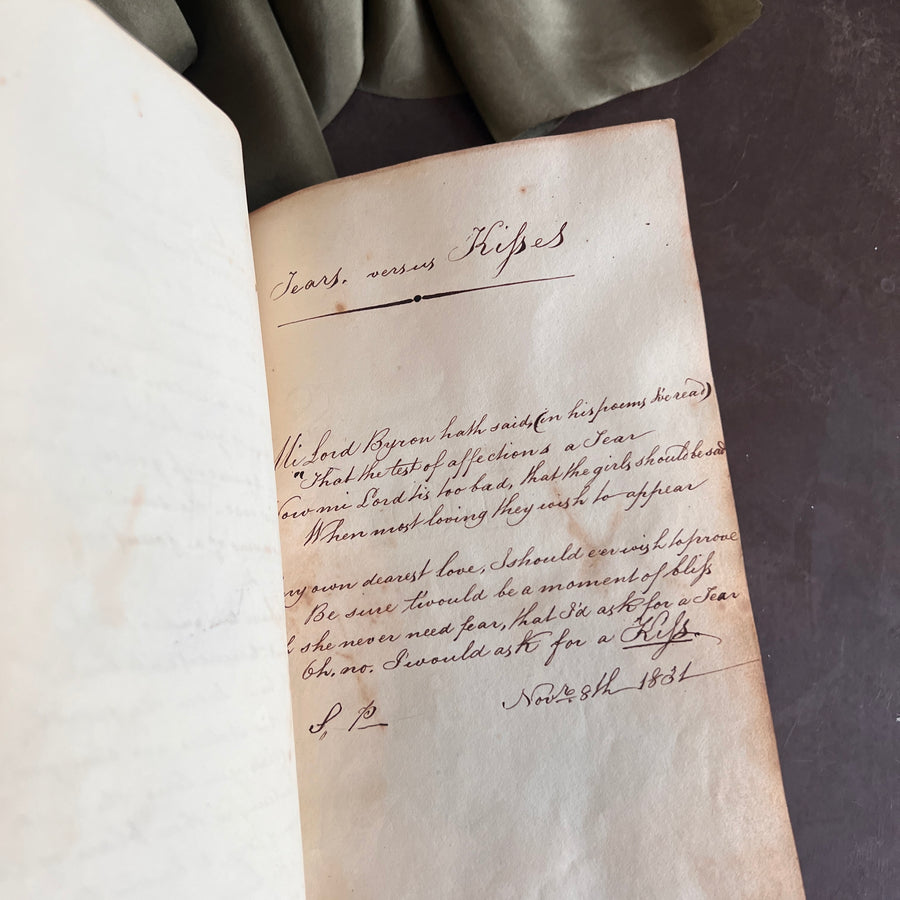 Tears. versus Kisses
Mi Lord Byron hath said, (in his poems I've read)
"That the test of affections a Tear
Now mi Lord tis too bad, that the girls should be sad
When most loving they wish to appear
my own dearest love, I should e'er wish to prove
Be sure t'would be a moment of bliss
she never need fear, that I'd ask for a Tear
Oh, no. I would ask for a Kiss.
S. P
Novr. 8th 1831